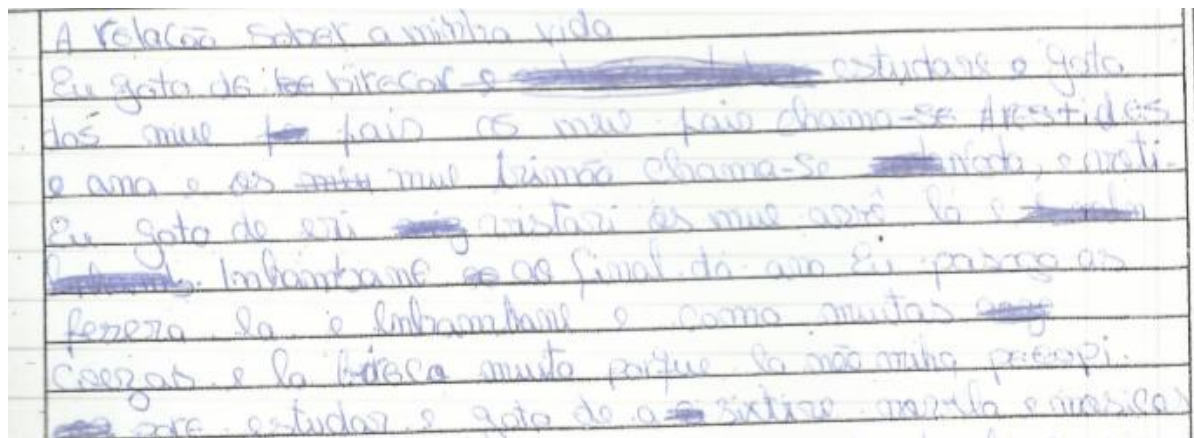 A relação sober a minha vida
Eu gota de birecar e estudare e gota
dos mue pais os mue pais chama-se Arestides
e ana e os mue Irimão chama-se
Eu gota de eri vistari os mue avrê la e
Imbambane ao final do ano Eu passo as
fereza la e Imbambane e como muitas
coezas e la bireca muito porque la não
para estudar e gota de a sixtire novela e musicas